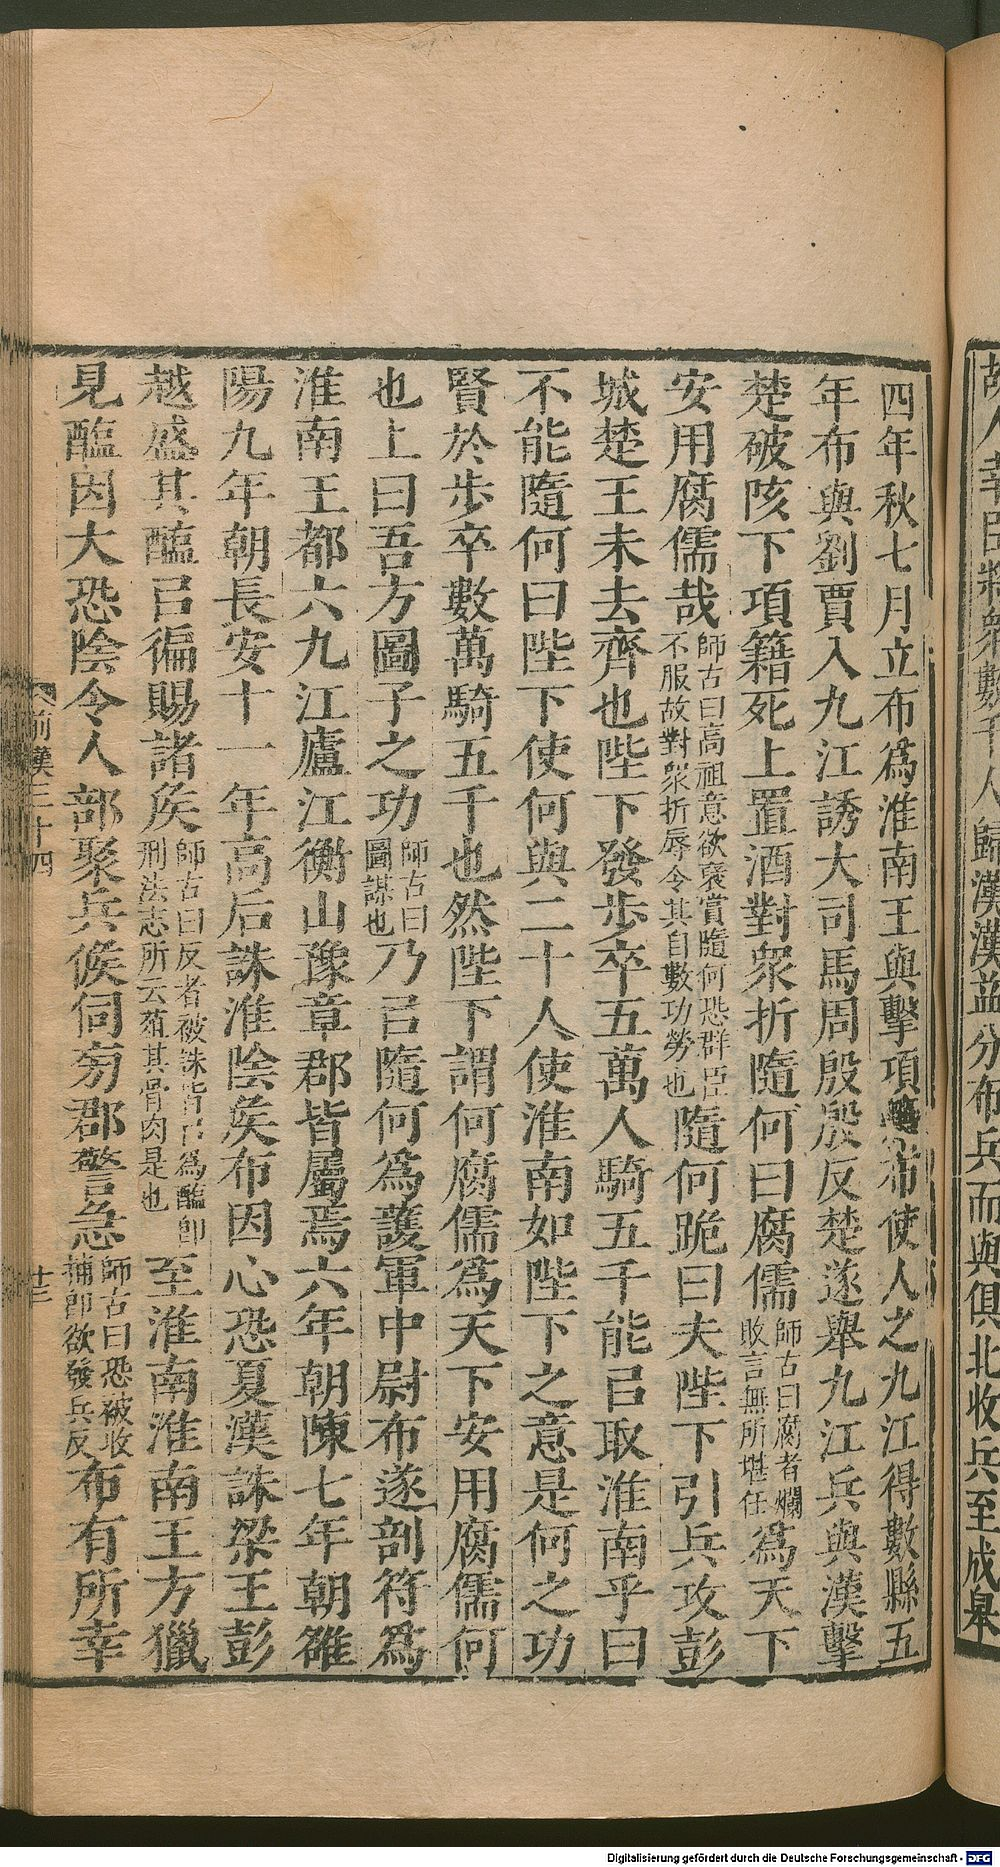 故人幸臣將衆數千人歸漢漢益分布兵而與俱北收兵至成皋
四年秋七月立布爲淮南王與擊項籍布使人之九江得數縣五
年布與劉賈入九江誘大司馬周殷殷反楚遂舉九江兵與漢擊
楚破垓下項籍死上置酒對衆折隨何曰腐儒
師古曰腐者爛
敗言無所堪任
爲天下
安用腐儒哉
師古曰高祖意欲襃賞隨何恐群臣
不服故對衆折辱令其自數功勞也
隨何跪曰夫陛下引兵攻彭
城楚王未去齊也陛下發步卒五萬人騎五千能㠯取淮南乎曰
不能隨何曰陛下使何與二十人使淮南如陛下之意是何之功
賢於步卒數萬騎五千也然陛下謂何腐儒爲天下安用腐儒何
也上曰吾方圖子之功
師古曰
圖謀也
乃㠯隨何爲護軍中尉布遂剖符爲
淮南王都六九江廬江衡山豫章郡皆屬焉六年朝陳七年朝雒
陽九年朝長安十一年高后誅淮陰矦布因心恐夏漢誅梁王彭
越盛其醢㠯徧賜諸矦
師古曰反者被誅皆㠯爲醢卽
刑法志所云菹其骨肉是也
至淮南淮南王方獵
見醢因大恐陰令人部聚兵候伺旁郡警急
師古曰恐被收
捕卽欲發兵反
布有所幸
前漢三十四
廿三
Digitalisierung gefördert durch die Deutsche Forschungsgemeinschaft - DFG